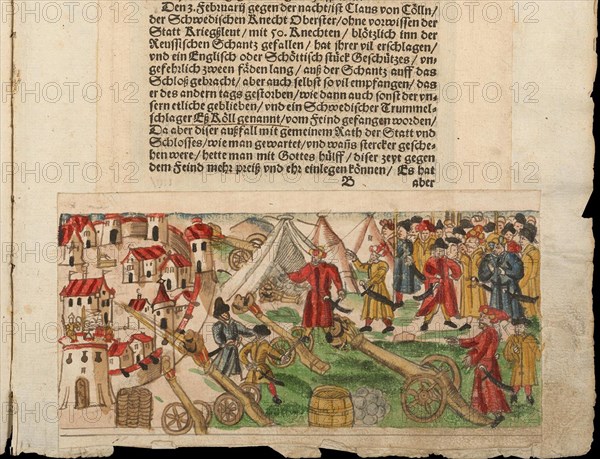 Den 3. Februarij gegen der nacht / ist Claus von Cölln /
der Schwedischen Knecht Oberster / ohne vorwissen der
Statt Kriegßleut / mit 50. Knechten / blötzlich inn der
Reussischen Schantz gefallen / hat jhrer vil erschlagen /
und ein Englisch oder Schöttisch stück Geschützes / un-
gefehrlich zween fäden lang / auß der Schantz auff das
Schloß gebracht / aber auch selbst so vil empfangen / das
er des andern tags gestorben / wie dann auch sonst der vn-
sern etliche geblieben / vnd ein Schwedischer Trummel-
schlager Eß Köll genannt / vom Feind gefangen worden /
Da aber diser außfall mit gemeinem Rath der Statt vnd
Schlosses / wie man gewartet / vnd wañs stercker gesche-
hen were / hette man mit Gottes hülff / diser zeyt gegen
dem Feind mehr preiß vnd ehr einlegen können / Es hat
B aber